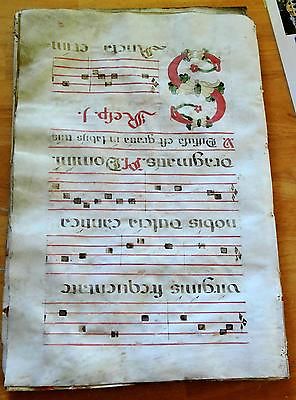 virginis frequentate
nobis dulcia cantica
dragmatis. Ps. Domini.
V Diffusa est gratia in labijs tuis
Resp. j.
SAncta et im